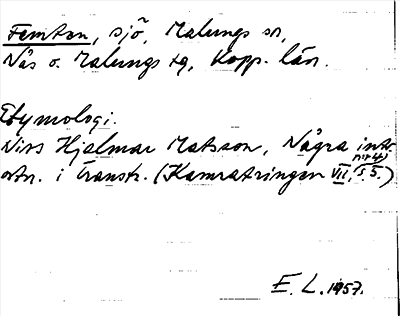 Femten, sjö, Malungs sn,
Nås o. Malungs tg, Kopp. län.
Etymologi.
Nils Hjalmar Matsson, Några intr.
ortn. i Transtr. (Kamratringen VII, nr 4, s. 5.)
E. L. 1957.